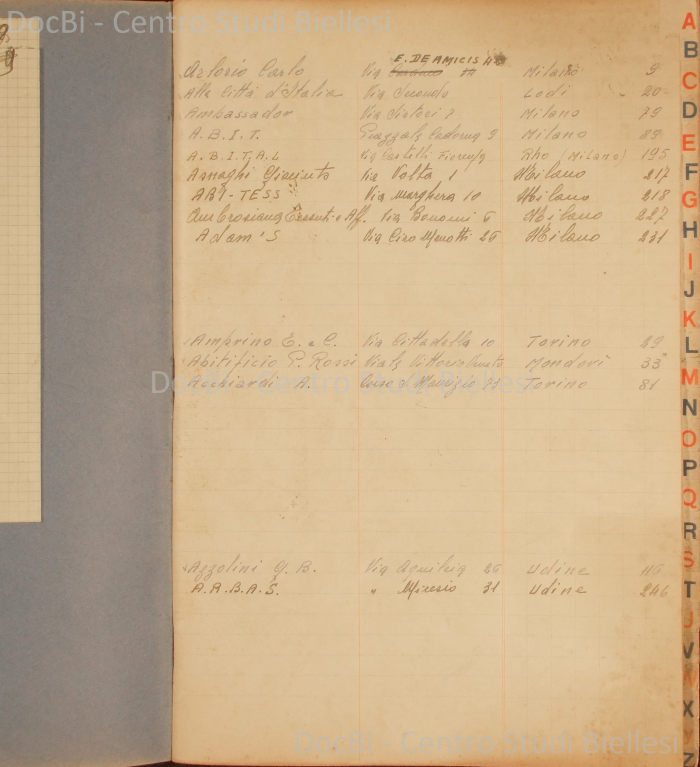 DocBi - Centro Studi Biellesi
E. DE AMICIS 48
Artorio Carlo Via 14 Milano 9
Alla Città d'Italia Via Lodi 20
Ambassador Via Sirtori 7 Milano 79
A.B.I.T. Piazzale Cadorna 9 Milano 89
A.B.I.T.A.L Via Castelli Fiorenza Rho (Milano) 195
Asnaghi Giacinto Via Volta 1 Milano 217
ABI-TESS Via Marghera 10 Milano 218
Ambrosiana Aff. Via Bonomi 6 Milano 227
Adam's Via Ciro Menotti 26 Milano 231
Amprino E. e C. Via Cittadella 10 Torino 29
Abitificio P. Rossi Viale Vittorio Veneto Mondovì 33
Acchiardi A. Corso Torino 81
DocBi - Centro Studi Biellesi
Azzolini G.B. Via Aquileia 26 Udine
A.R.B.A.S. " 31 Udine 246
DocBi - Centro Studi Biellesi
A
B
C
D
E
F
G
H
I
J
K
L
M
N
O
P
Q
R
S
T
U
V
W
X
Z